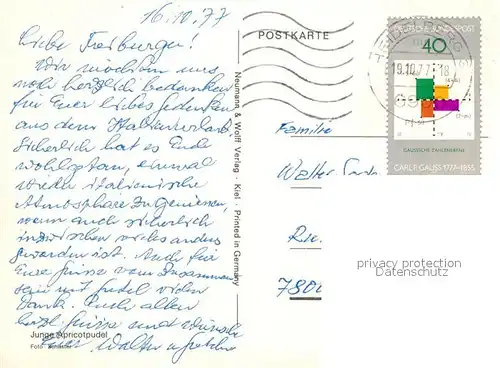 16.10.77
Liebe Freiburger!
Wir möchten uns
noch herzlich bedanken
für Euer liebes Gedenken
aus dem Italienurlaub.
Sicherlich hat es Euch
wohlgetan, einmal
wieder italienische
Atmosphäre zu genießen,
wenn auch sicherlich
inzwischen vieles anders
geworden ist. Auch für
Eure Grüsse vom Zusammen
sein mit
vielen
Dank. Euch allen
herzl. Grüsse und Wünsche
Eure Walter u.
Junge Apricotpudel
Foto:
Neumann & Wolff Verlag · Kiel · Printed in Germany
POSTKARTE
Familie
Walter
780
DEUTSCHE BUNDESPOST
40
HEIDELBERG
19.10.77-18
GAUSSSCHE ZAHLENEBENE
CARL F. GAUSS 1777-1855
privacy protection
Datenschutz